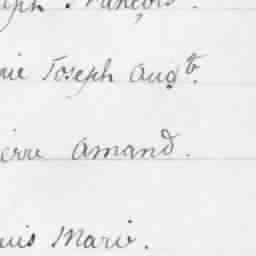 eph François.
rie Joseph Augte.
ierre Amand.
ouis Marie.